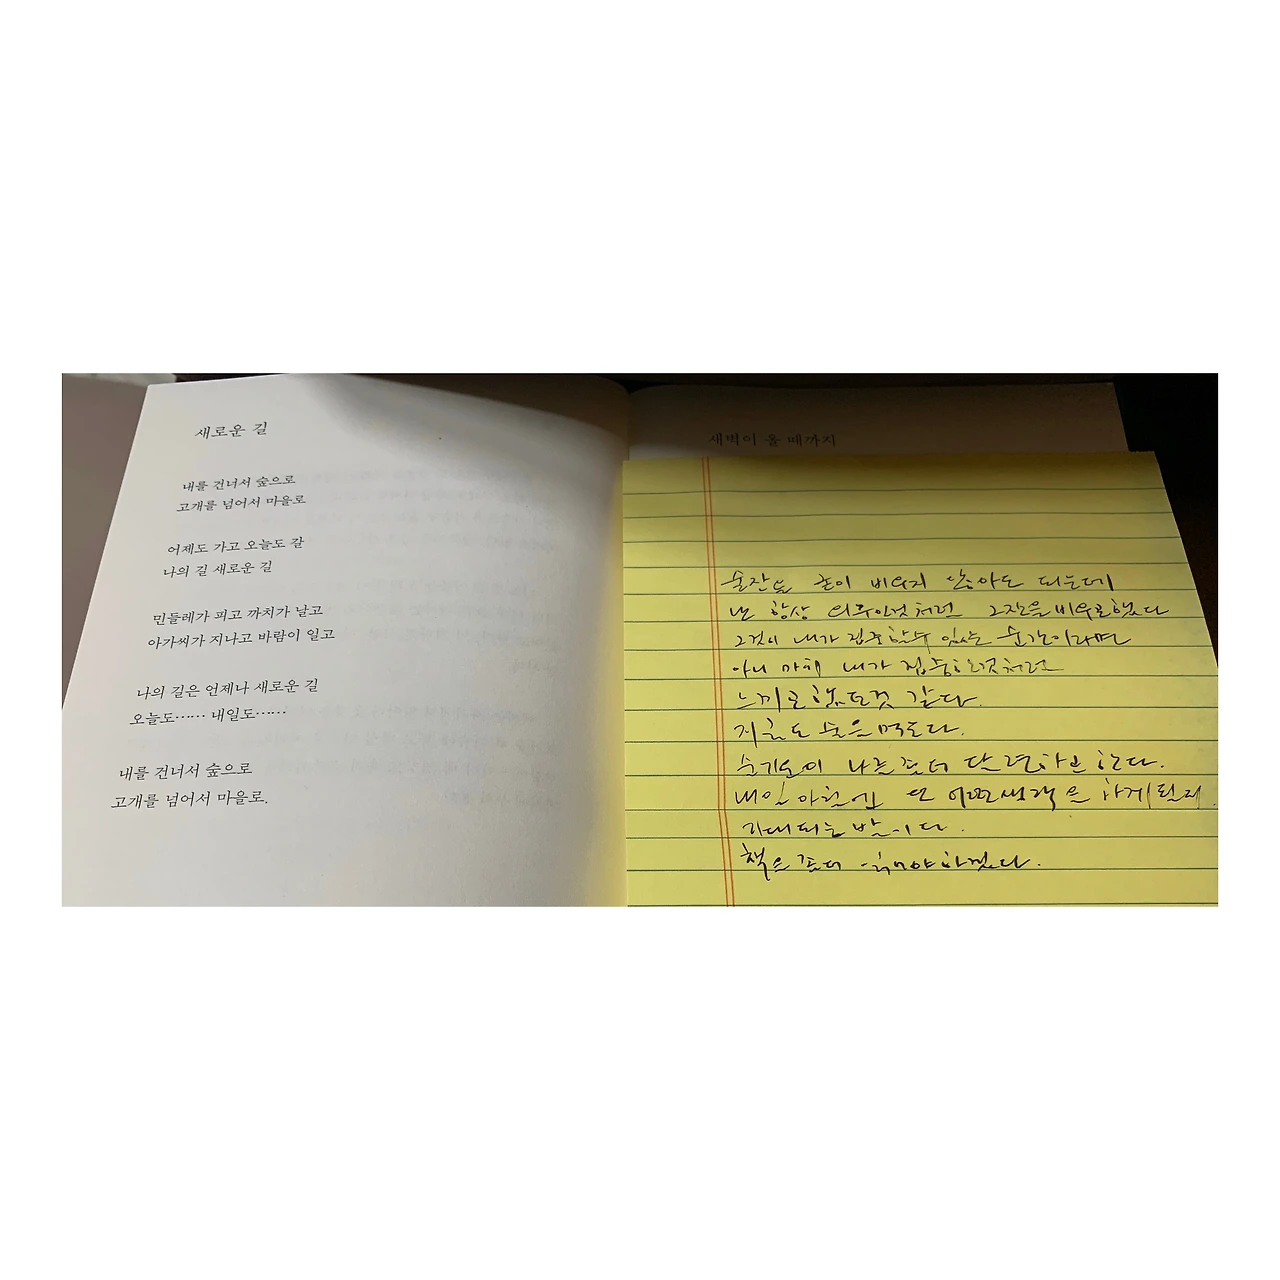 새로운 길
내를 건너서 숲으로
고개를 넘어서 마을로
어제도 가고 오늘도 갈
나의 길 새로운 길
민들레가 피고 까치가 날고
아가씨가 지나고 바람이 일고
나의 길은 언제나 새로운 길
오늘도…… 내일도……
내를 건너서 숲으로
고개를 넘어서 마을로.
새벽이 올 때까지
술잔을 굳이 비우지 않아도 되는데
난 항상 의무인것처럼 그잔을 비우고했다
그것이 내가 집중할수 있는 순간이라며
아니 마치 내가 집중한것처럼
느끼고 했던것 같다.
술을 먹는다.
나를 단련하고 한다.
내일 아침엔 또 어떤생각을 하게될지
기대되는 밤이다.
책을 읽어야하겠다.